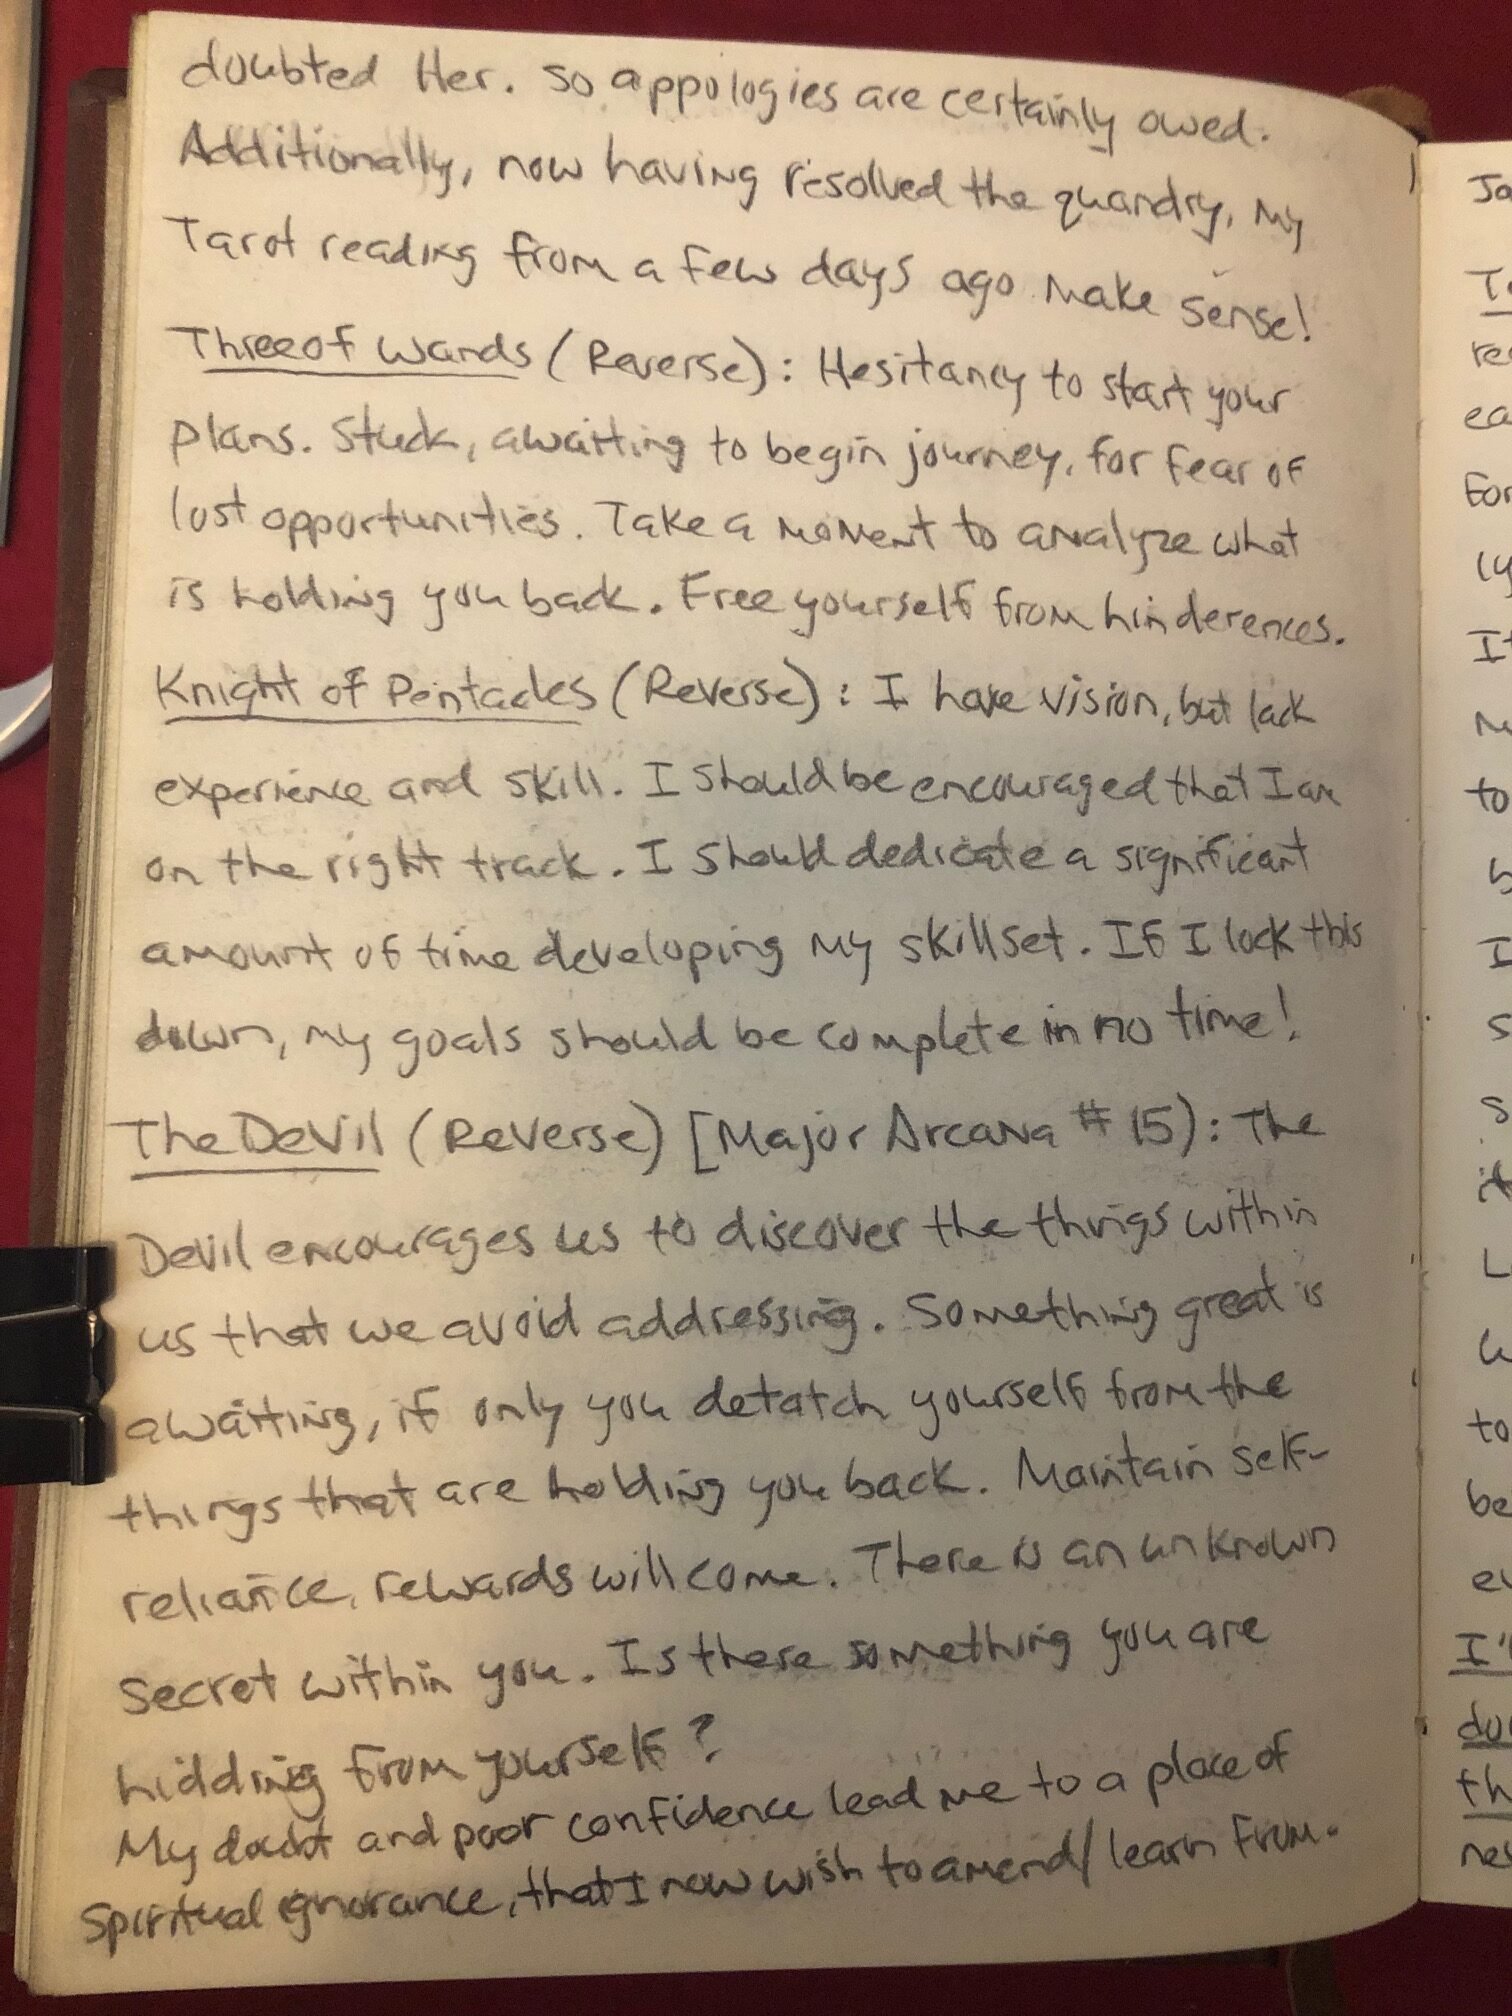 doubted Her. So appologies are certainly owed.
Additionally, now having resolved the quandry, my
Tarot reading from a few days ago make sense!
Three of Wands (Reverse): Hesitancy to start your
plans. Stuck, awaiting to begin journey, for fear of
lost opportunities. Take a moment to analyze what
is holding you back. Free yourself from hinderences.
Knight of Pentacles (Reverse): I have vision, but lack
experience and skill. I should be encouraged that I am
on the right track. I should dedicate a significant
amount of time developing my skillset. If I lock this
down, my goals should be complete in no time!
The Devil (Reverse) [Major Arcana #15): The
Devil encourages us to discover the things within
us that we avoid addressing. Something great is
awaiting, if only you detatch yourself from the
things that are holding you back. Maintain self-
reliance, rewards will come. There is an unknown
secret within you. Is there something you are
hidding from yourself?
My doubt and poor confidence lead me to a place of
Spiritual ignorance, that I now wish to amend/learn from.
Ta
re
ea
For
ly
It
to
I
s
s
L
to
be
I'
du
th